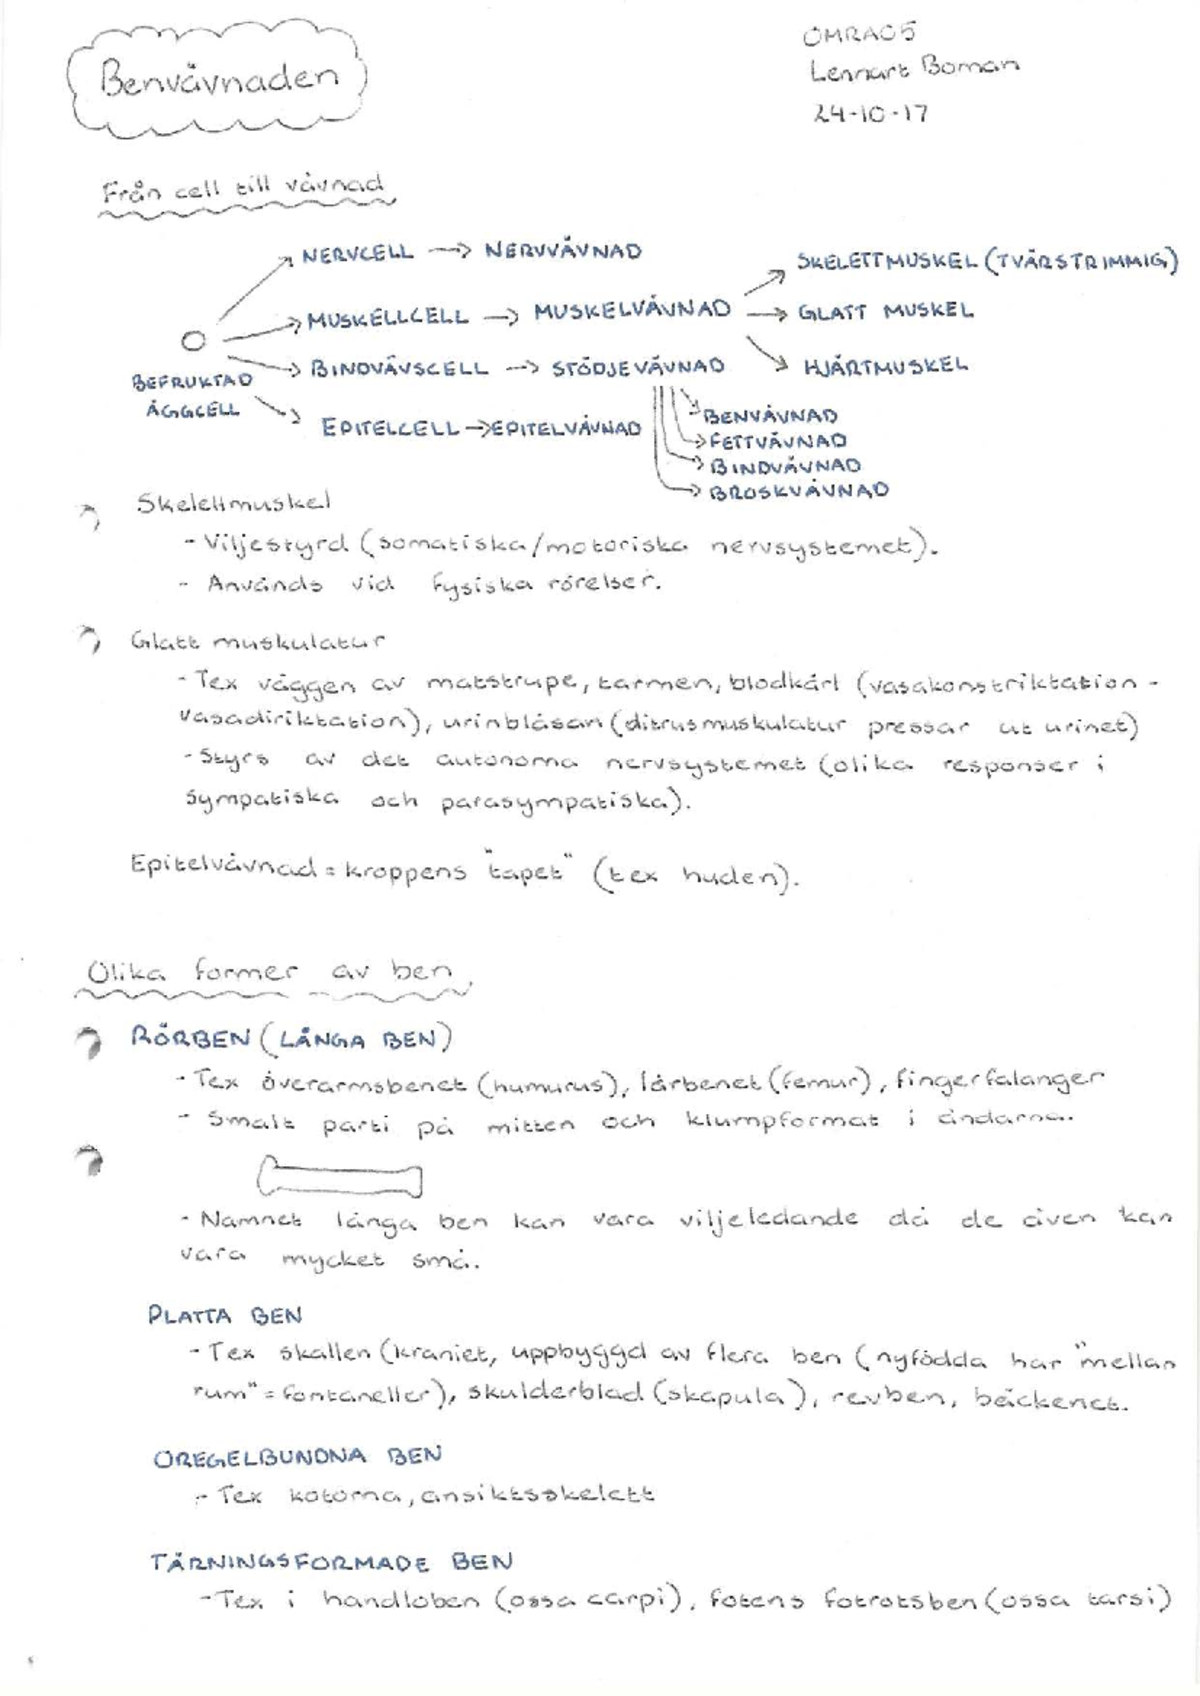 Benvävnaden
OMRA05
Lennart Boman
24-10-17
Från cell till vävnad
NERVCELL → NERVVÄVNAD
SKELETTMUSKEL (TVÄRSTRIMMIG)
MUSKELLCELL → MUSKELVÄVNAD → GLATT MUSKEL
BINDVÄVSCELL → STÖDJEVÄVNAD
HJÄRTMUSKEL
BEFRUKTAD
ÄGGCELL
EPITELCELL → EPITELVÄVNAD
BENVÄVNAD
FETTVÄVNAD
BINDVÄVNAD
BROSKVÄVNAD
Skelettmuskel
- Viljestyrd (somatiska/motoriska nervsystemet).
- Används vid fysiska rörelser.
Glatt muskulatur
- Tex väggen av matstrupe, tarmen, blodkärl (vasakonstriktation -
vasadiriktation), urinblåsan (ditrusmuskulatur pressar ut urinet)
- Styrs av det autonoma nervsystemet (olika responser i
sympatiska och parasympatiska).
Epitelvävnad = kroppens "tapet" (tex huden).
Olika former av ben
RÖRBEN (LÅNGA BEN)
- Tex överarmsbenet (humurus), lårbenet (femur), fingerfalanger
- Smalt parti på mitten och klumpformat i ändarna.
- Namnet långa ben kan vara viljeledande då de även kan
vara mycket små.
PLATTA BEN
- Tex skallen (kraniet, uppbyggd av flera ben (nyfödda har "mellan
rum" = fontaneller), skulderblad (skapula), revben, bäckenet.
OREGELBUNDNA BEN
- Tex kotorna, ansiktsskelett
TÄRNINGSFORMADE BEN
- Tex i handloben (ossa carpi), fotens fotrotsben (ossa tarsi)